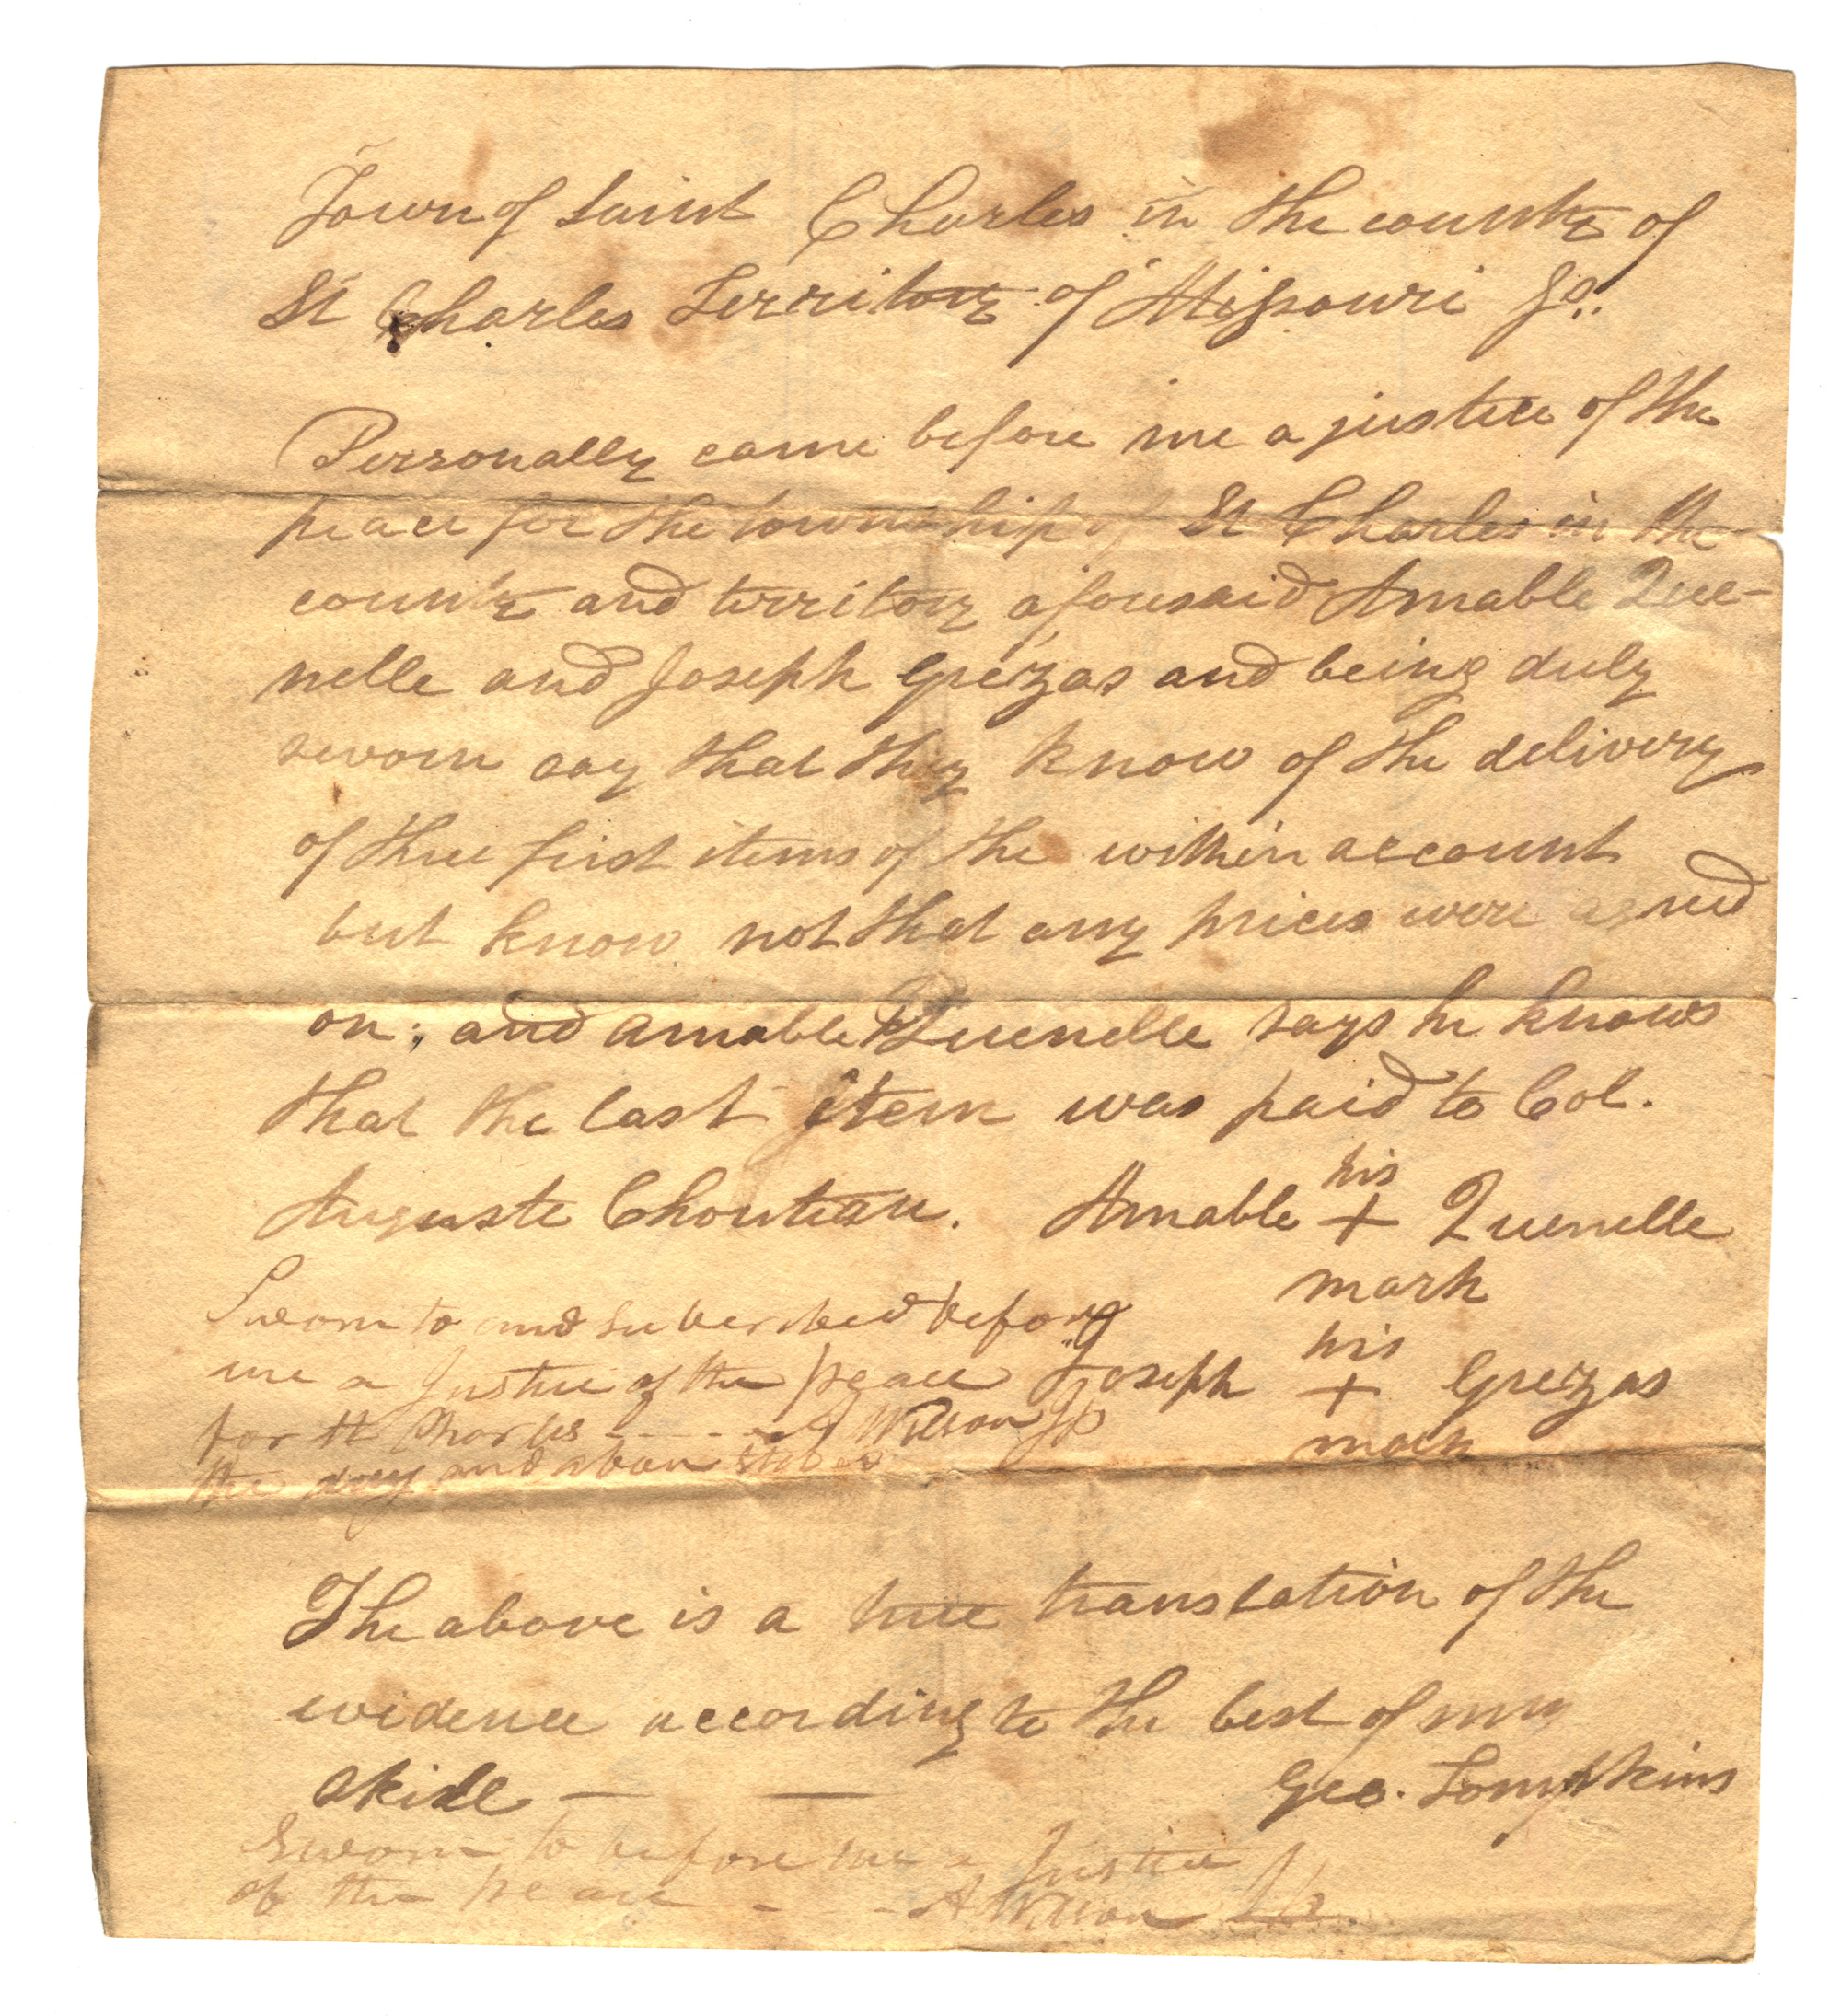 Town of Saint Charles in the county of
St Charles Territory of Missouri Ss.
Personally came before me a justice of the
peace for the township of St Charles in the
county and territory aforesaid Amable Que-
nelle and Joseph Grezas and being duly
sworn say that they know of the delivery
of three first items of the within account
but know not that any prices were agreed
on; and Amable Quenelle says he knows
that the last item was paid to Col.
Auguste Chouteau. Amable his + mark Quenelle
Sworn to and subscribed before
me a Justice of the peace Joseph his + mark Grezas
for St Charles - - - - A Wilson JP
the day and above
The above is a true translation of the
evidence according to the best of my
skill — — Geo. Tompkins
Sworn to before me a Justice
of the peace - - - A Wilson JP.